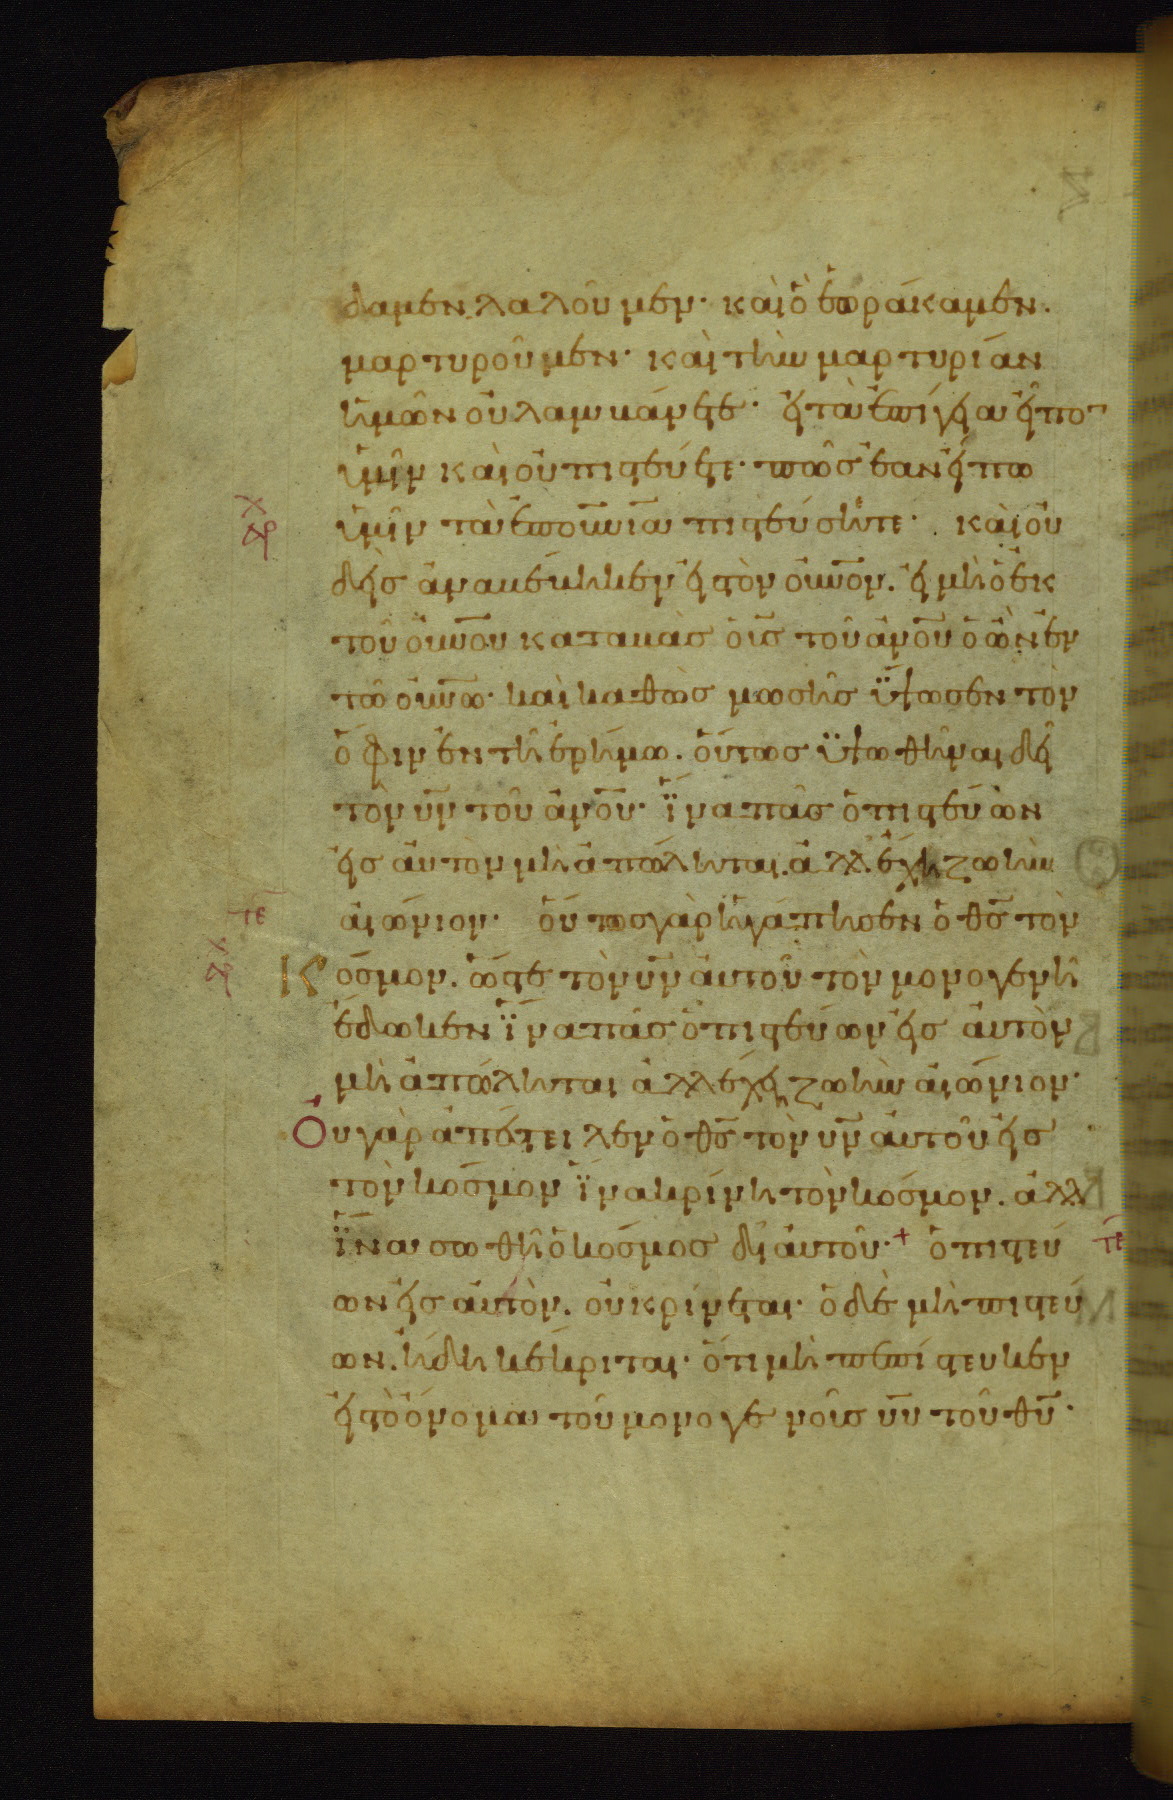 δαμεν λαλοῦμεν· καὶ ὃ ἑωράκαμεν.
μαρτυροῦμεν· καὶ τὴν μαρτυρίαν
ἡμῶν οὐ λαμβάνετε· εἰ τὰ ἐπίγεια εἶπον
ὑμῖν καὶ οὐ πιστεύετε· πῶς ἐὰν εἴπω
ὑμῖν τὰ ἐπουνια πιστεύσητε· καὶ οὐ
δεὶς ἀναβέβηκεν εἰς τὸν οὐνον. εἰ μὴ ὁ ἐκ
τοῦ οὐνου καταβὰς ὁ υς τοῦ ανου ὁ ὢν ἐν
τῶ οὐνω· καὶ καθὼς μωσῆς ὕψωσεν τὸν
ὄφιν ἐν τῆ ἐρήμω. οὕτως ὑψωθῆναι δεῖ
τὸν υν τοῦ ανου· ἵνα πᾶς ὁ πιστεύων
εἰς αὐτὸν μὴ ἀπόληται. ἀλλ ἔχη ζωὴν
αἰώνιον· οὕτως γὰρ ἠγάπησεν ὁ θς τὸν
Κόσμον. ὥστε τὸν υν αὐτοῦ τὸν μονογενῆ
ἔδωκεν ἵνα πᾶς ὁ πιστεύων εἰς αὐτὸν
μὴ ἀπόληται ἀλλ ἔχει ζωὴν αἰώνιον·
Οὐ γὰρ ἀπέστειλεν ὁ θς τὸν υν αὐτοῦ εἰς
τὸν κόσμον ἵνα κρίνη τὸν κόσμον. ἀλλ
ἵνα σωθῆ ὁ κόσμος δι αὐτοῦ·+ ὁ πιστεύ τε
ων εἰς αὐτὸν. οὐ κρίνεται· ὁ δὲ μὴ πιστεύ
ων. ἤδη κέκριται· ὅτι μὴ πεπίστευκεν
εἰς τὸ ὄνομα τοῦ μονογενοῦς υυ τοῦ θυ·